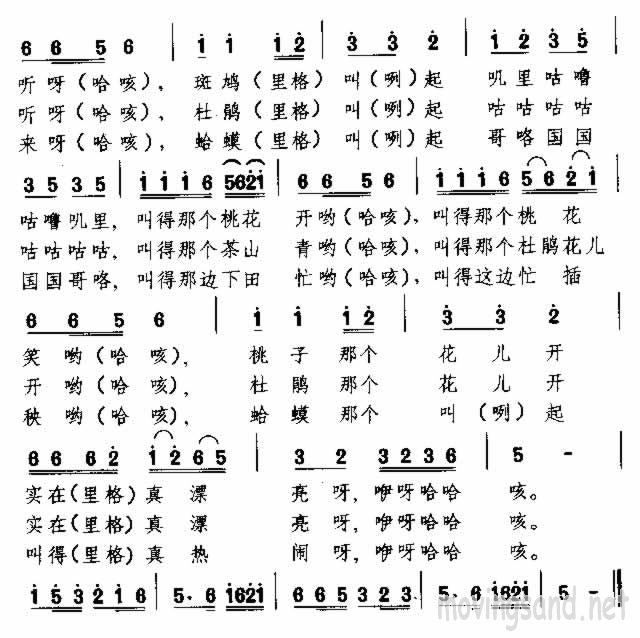 6 6 5 6 | i i i 2 | 3 3 2 | i 2 3 5
听呀(哈咳), 斑鸠(里格) 叫(咧)起 叽里咕噜
听呀(哈咳), 杜鹃(里格) 叫(咧)起 咕咕咕咕
来呀(哈咳), 蛤蟆(里格) 叫(咧)起 哥咯国国
3 5 3 5 | i i i 6 5621 | 6 6 5 6 | i i i 6 5 6 2 i
咕噜叽里, 叫得那个桃花 开哟(哈咳), 叫得那个桃 花
咕咕咕咕, 叫得那个茶山 青哟(哈咳), 叫得那个杜鹃花儿
国国哥咯, 叫得那边下田 忙哟(哈咳), 叫得这边忙 插
6 6 5 6 | i i i 2 | 3 3 2 |
笑哟(哈咳), 桃子那个 花儿开
开哟(哈咳), 杜鹃那个 花儿开
秧哟(哈咳), 蛤蟆那个 叫(咧)起
6 6 6 2 i 2 6 5 | 3 2 3 2 3 6 | 5 - |
实在(里格)真漂 亮呀,咿呀哈哈 咳。
实在(里格)真漂 亮呀,咿呀哈哈 咳。
叫得(里格)真热 闹呀,咿呀哈哈 咳。
i 5 3 2 i i 2 3 | 5. 6 i621 | 6 6 5 3 2 3 | 5. 6 i621 | 5 - ‖
movingsand.net